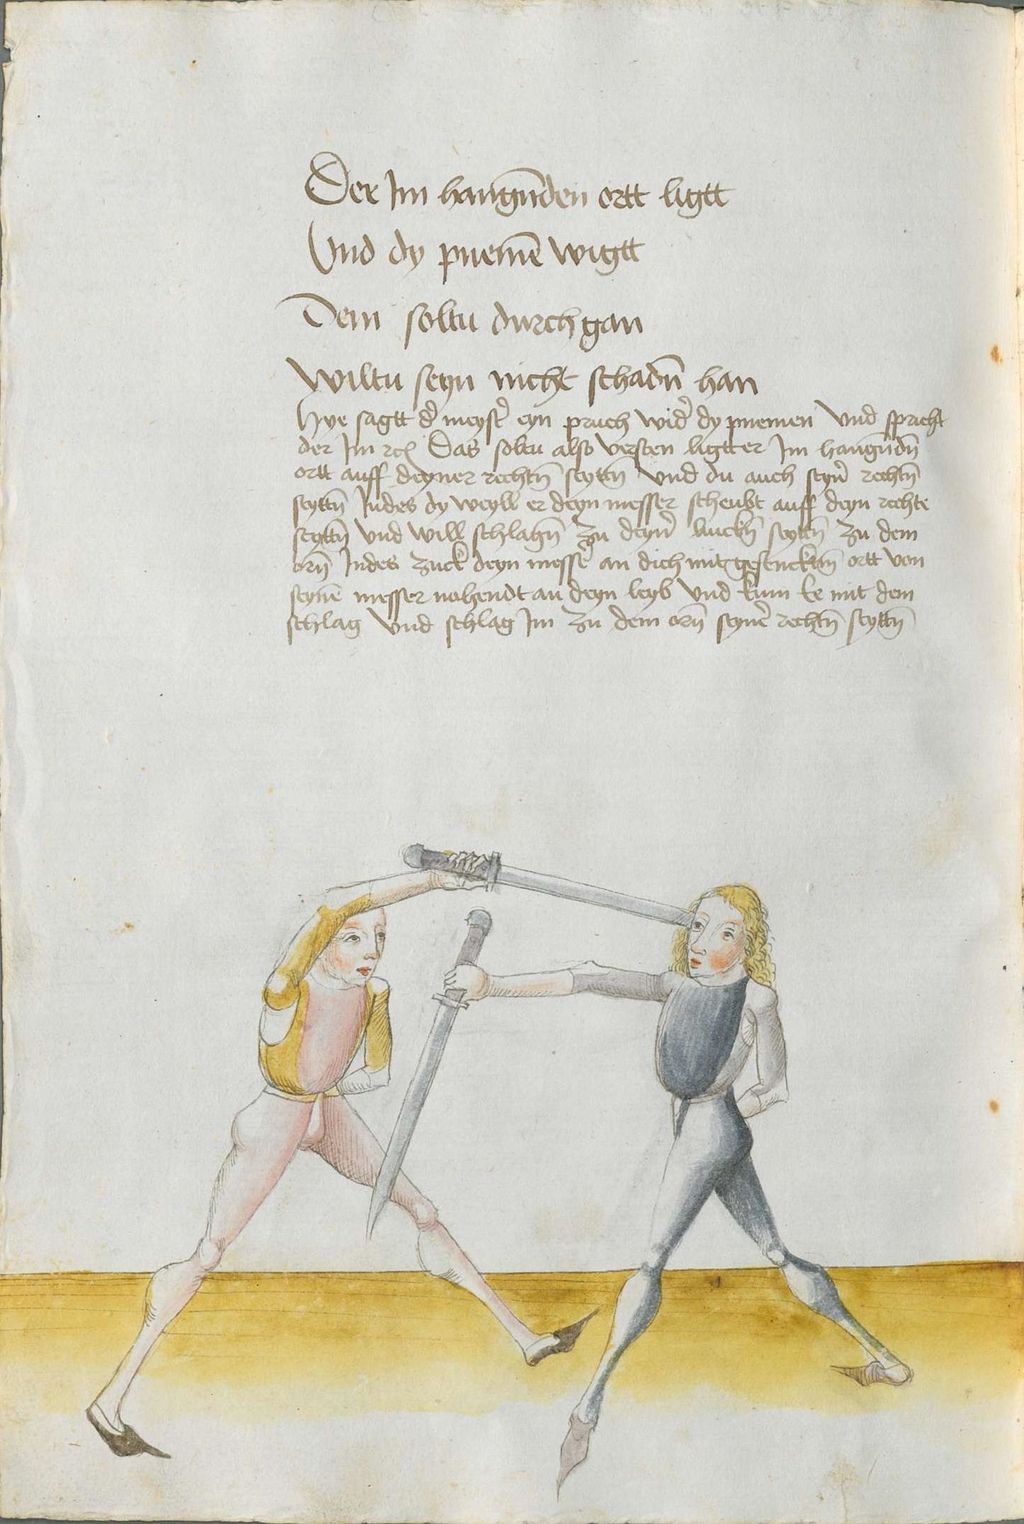 Der Im hangūden ortt ligtt
Und dy pnemē wigtt
Dem soltu durch gan
Wiltu seyn nicht schadn̄ han
Hye sagtt d' meyst' eyn pruch wid' dy pnemen Und spricht
der Im rc Das soltu also versten ligtt er Im hangūdn̄
ortt auff deyner rechtn̄ seyttn̄ Und du auch seyn' rechtn̄
seyttn̄ Indes dy weyll er deyn messer scheubt auff deyn rechte
seyttn̄ Und will schlagn̄ zu deyn' linckn̄ seyttn̄ zu dem
orn̄ Indes zuck deyn messer an dich mit gesencktm̄ ortt von
seynē messer nohendt an deyn leyb Und kum ee mit dem
schlag Und schlag Im zu dem orn̄ seyner rechtn̄ seyttn̄